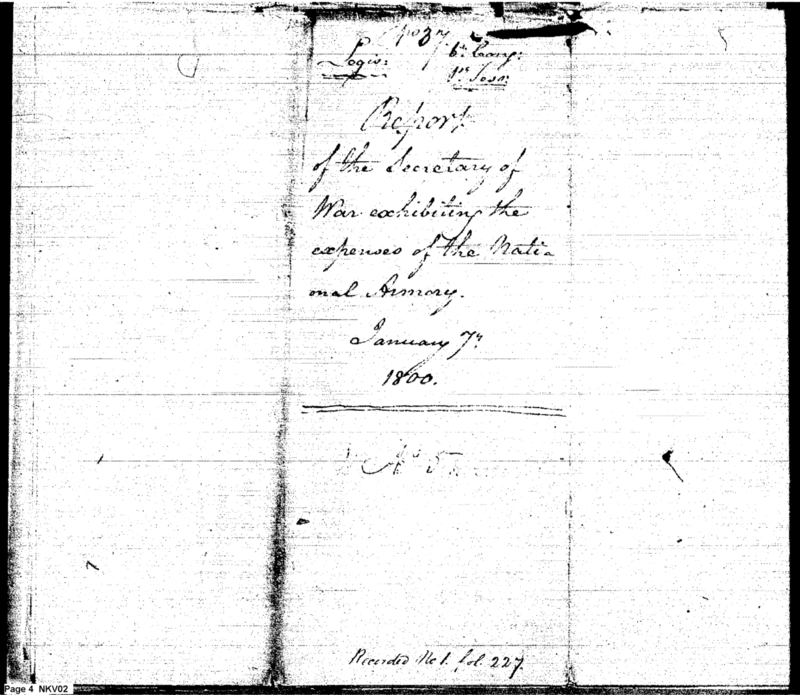 Legis: 6th Cong:
1st Sess:
Report
of the Secretary of
War exhibiting the
expenses of the Nati=
onal Armory.
January 7th
1800.
No 5
Recorded No 1. fol. 227.
Page 4 NKV02